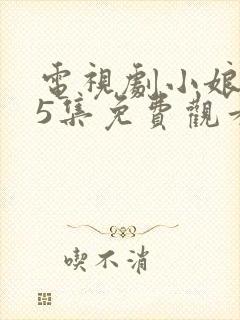 電視劇小娘
5集免費觀
喫不消